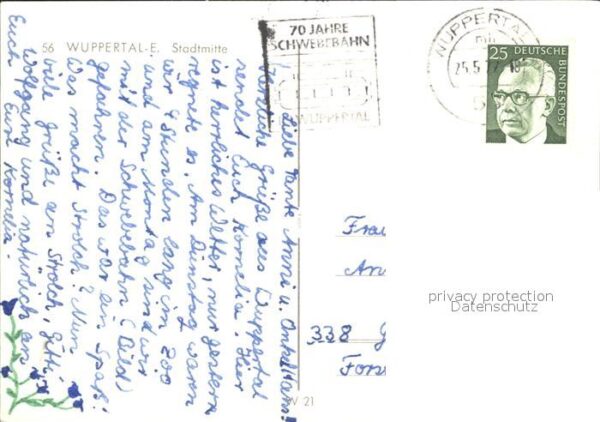 56 WUPPERTAL-E. Stadtmitte
70 JAHRE
SCHWEBEBAHN
WUPPERTAL
WUPPERTAL
25.5.
25 DEUTSCHE
BUNDESPOST
Liebe Tante Anni u. Onkel
Herzliche Grüße aus Wuppertal
sendet Euch Kornelia. Hier
ist herrliches Wetter, nur gestern
regnete es. Am Dienstag waren
wir 4 Stunden lang im Zoo
und am Montag sind wir
mit der Schwebebahn (Bild)
gefahren. Das war ein Spaß!
Was macht Strolch? Nun
viele grüße an Strolch,
Wolfgang und natürlich an
Euch Eure Kornelia.
Frau
An
338 G
Fors
W 21
privacy protection
Datenschutz